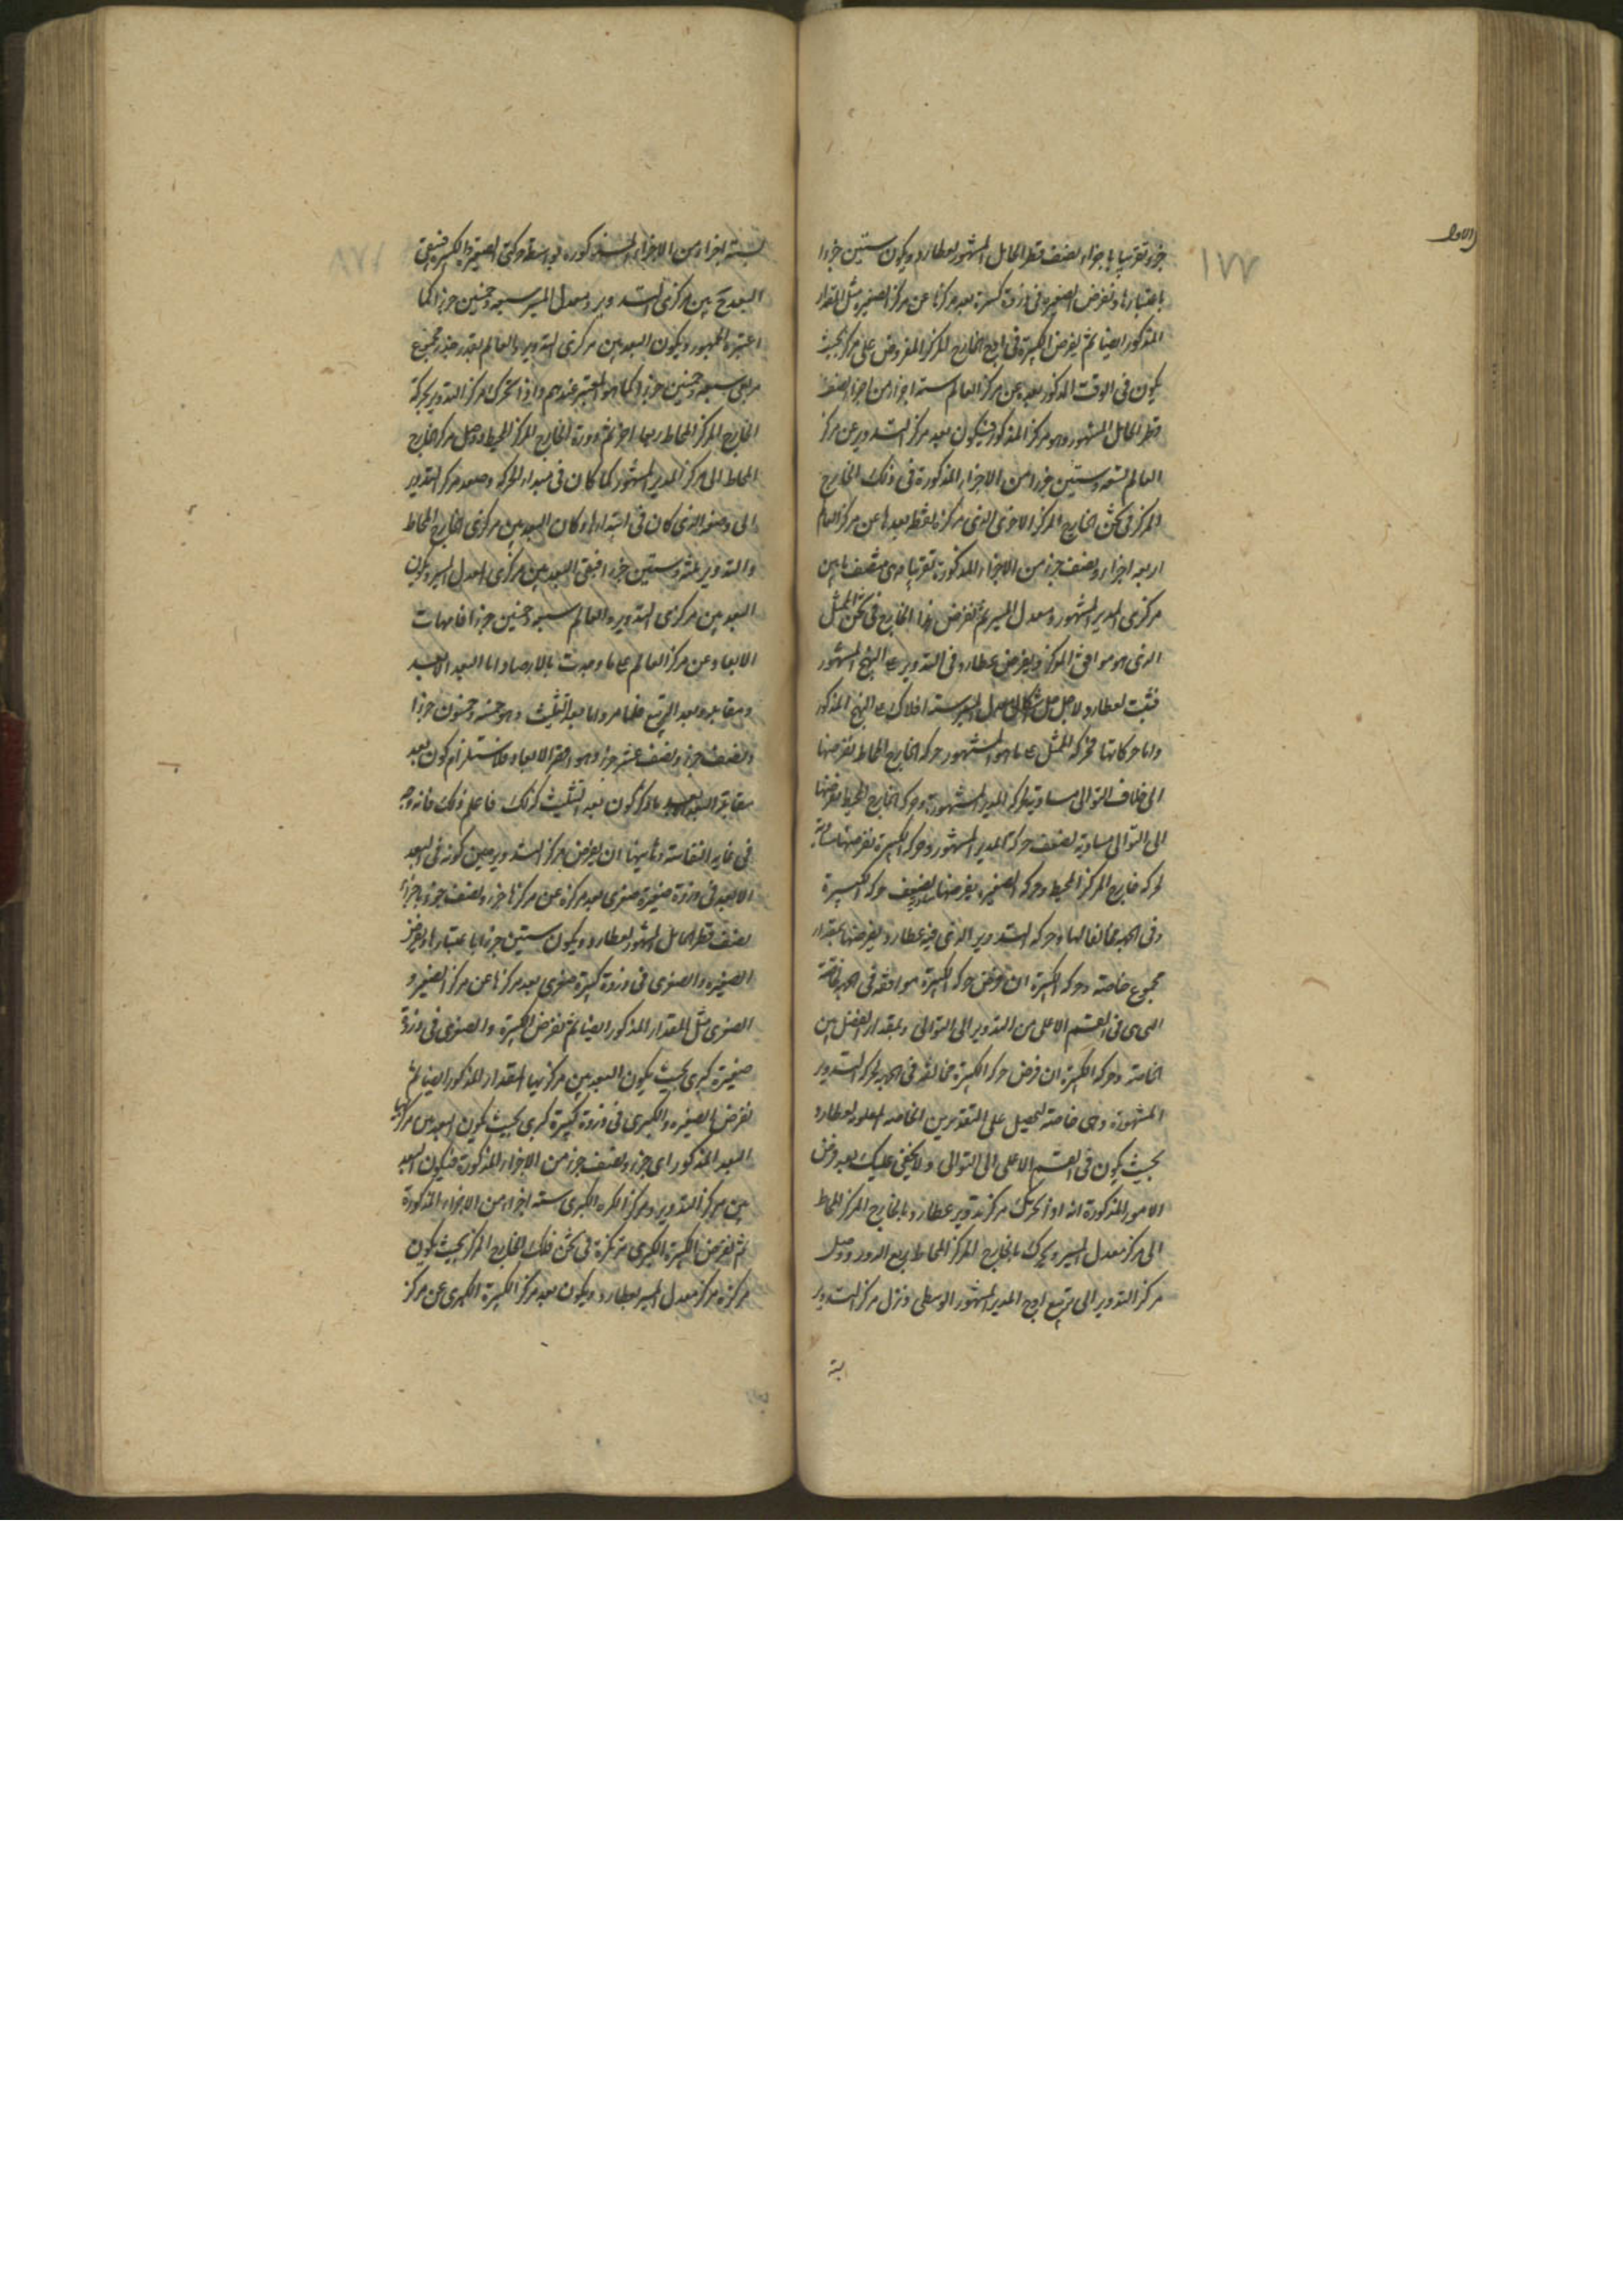 ١٧٧
جزء تقريبا باجزاء نصف قطر الحامل المشهور لعطارد ويكون ستين جزءا
باعتبارها ونفرض الصغيرة فى ذروة كبيرة بعد مركزها عن مركز الصغيرة مثل المقدار
المذكور ايضا ثم نفرض الكبيرة فى اوج الخارج المركز المفروض على مركز بحيث
يكون فى الوقت المذكور بعده عن مركز العالم ستة اجزاء من اجزاء نصف
قطر الحامل المشهور وهو مركز المذكور فيكون بعد مركز التدوير عن مركز
العالم تسعة وستين جزءا من الاجزاء المذكورة فى ذلك الخارج
المركز فى ثخن الخارج المركز الاخر الذى مركزه نقطة بعدها عن مركز العالم
اربعة اجزاء ونصف جزء من الاجزاء المذكورة تقريبا وهى منتصف ما بين
مركزى المدير المشهور ومعدل المسير ثم نفرض هذا الخارج فى ثخن الممثل
الذى هو موافق المركز ونفرض عطارد فى التدوير على النهج المشهور
فثبت لعطارد لاجل حل اشكال معدل المسير ستة افلاك على النهج المذكور
واما حركاتها فحركة الممثل على ما هو المشهور وحركة الخارج المحاط نفرضها
الى خلاف التوالى مساوية لحركة المدير المشهورة وحركة الخارج المحيط نفرضها
الى التوالى مساوية لضعف حركة المدير المشهور وحركة الكبيرة نفرضها مساوية
لحركة خارج المركز المحيط وحركة الصغيرة نفرضها مساوية لضعف حركة الكبيرة
وفى الجهة مخالفا لها وحركة التدوير الذى فيه عطارد نفرضها بمقدار
مجموع خاصته وحركة الكبيرة ان فرض حركة الكبيرة موافقة فى الجهة لخاصة
التى هى فى القسم الاعلى من التدوير الى التوالى وبمقدار الفضل بين
الخاصة وحركة الكبيرة ان فرض حركة الكبيرة مخالفة فى الجهة لحركة التدوير
المشهورة وهى خاصته ليحصل على التقديرين الخاصة المعلومة لعطارد
بحيث يكون فى القسم الاعلى الى التوالى ولا يخفى عليك بعد فرض
الامور المذكورة انه اذا تحرك مركز تدوير عطارد بالخارج المركز المحاط
الى مركز معدل المسير وتحرك بالخارج المركز المحاط ربع الدور ووصل
مركز التدوير الى تربيع اوج المدير المشهور الوسطى ونزل مركز التدوير
ستة اجزاء من الاجزاء المذكورة بواسطة حركتى الصغيرة والكبيرة فيبقى
البعد بين مركزى التدوير ومعدل المسير سبعة وخمسين جزءا كما
اعتبره الجمهور ويكون البعد بين مركزى التدوير والعالم بقدر جذر مجموع
مربعى سبعة وخمسين جزءا كما هو المعتبر عندهم واذا تحرك مركز التدوير بحركة
الخارج المركز المحاط ربعا اخر تم دورة الخارج المركز المحيط ووصل مركز خارج
المحاط الى مركز المدير المشهور كما كان فى مبدء الحركة وصعد مركز التدوير
الى وضعه الذى كان فى ابتدائها وكان البعد بين مركزى الخارج المحاط
والتدوير ثلثة وستين جزءا فبقى البعد بين مركزى معدل المسير ويكون
البعد بين مركزى التدوير والعالم سبعة وخمسين جزءا فامهات
الابعاد عن مركز العالم على ما وجدت بالارصاد اما البعد الابعد
ومقابله وبعد التربيع فلما مر واما بعد التثليث وهو خمسة وخمسون جزءا
ونصف جزء ونصف عشر جزء وهو اقصر الابعاد فلاستلزام كون بعد
مقابلة البعد الابعد ما ذكر كون بعد التثليث كذلك فاعلم ذلك فانه وجه
فى غاية النفاسة وثانيها ان نفرض مركز التدوير حين كونه فى البعد
الابعد فى ذروة صغيرة صغرى بعد مركزه عن مركزها جزء ونصف جزء باجزاء
نصف قطر الحامل المشهور لعطارد ويكون ستين جزءا باعتبارها ونفرض
الصغيرة الصغرى فى ذروة كبيرة صغرى بعد مركزها عن مركز الصغيرة
الصغرى مثل المقدار المذكور ايضا ثم نفرض الكبيرة الصغرى فى ذروة
صغيرة كبرى بحيث يكون البعد بين مركزيهما المقدار المذكور ايضا ثم
نفرض الصغيرة الكبرى فى ذروة كبيرة كبرى بحيث يكون البعد بين مركزيهما
البعد المذكور اى جزء ونصف جزء من الاجزاء المذكورة فيكون البعد
بين مركز التدوير ومركز الكرة الكبرى ستة اجزاء من الاجزاء المذكورة
ثم نفرض الكبيرة الكبرى مركزة فى ثخن فلك الخارج المركز بحيث يكون
مركزه مركز معدل المسير لعطارد ويكون بعد مركز الكبيرة الكبرى عن مركز